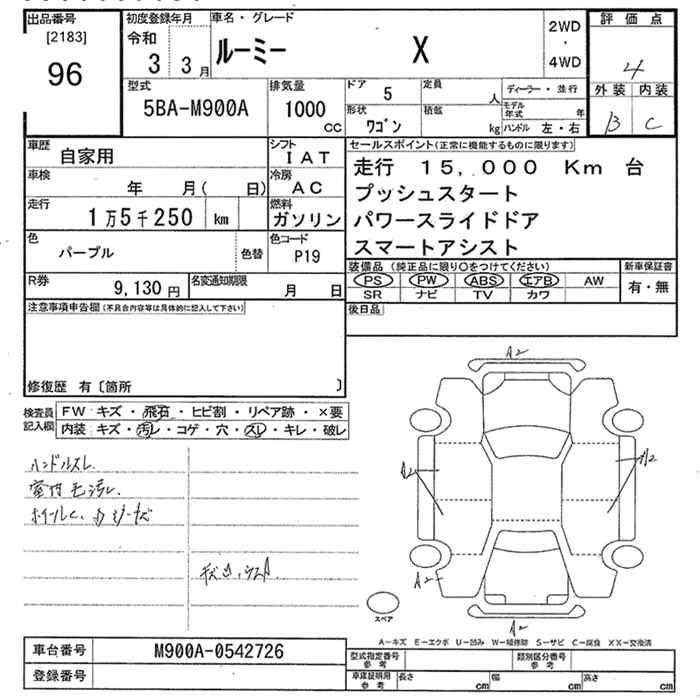 出品番号 初度登録年月 車名・グレード 2WD・4WD 評価点
[2183] 令和 ルーミー X 4
96 3 3月 外装 内装
型式 排気量 ドア 5 定員 人 ディーラー・並行 B C
5BA-M900A 1000 CC 形状 ワゴン 積載 kg モデル年式 年
ハンドル 左・右
車歴 自家用 シフト IAT セールスポイント(正常に機能するものに限ります)
車検 年 月( 日) 冷房 AC 走行 15,000 Km 台
走行 1万5千250 km 燃料 ガソリン プッシュスタート
パワースライドドア
色 パープル 色替 色コード P19 スマートアシスト
R券 9,130円 名変通知期限 月 日 装備品(純正品に限り○をつけてください) 新車保証書
PS PW ABS エアB AW 有・無
SR ナビ TV カワ
注意事項申告欄(不具合内容等は具体的に記入して下さい) 後日品
修復歴 有〔箇所 〕
検査員記入欄 FW キズ・飛石・ヒビ割・リペア跡・×要
内装 キズ・汚レ・コゲ・穴・スレ・キレ・破レ
A2
ハンドルスレ
A2 A2
A2
スペア
A−キズ E−エクボ U−凹み W−補修跡 S−サビ C−腐食 XX−交換済
車台番号 M900A-0542726 型式指定番号 参考 類別区分番号 参考
登録番号 車庫証明用 参考 長さ cm 幅 cm 高さ cm